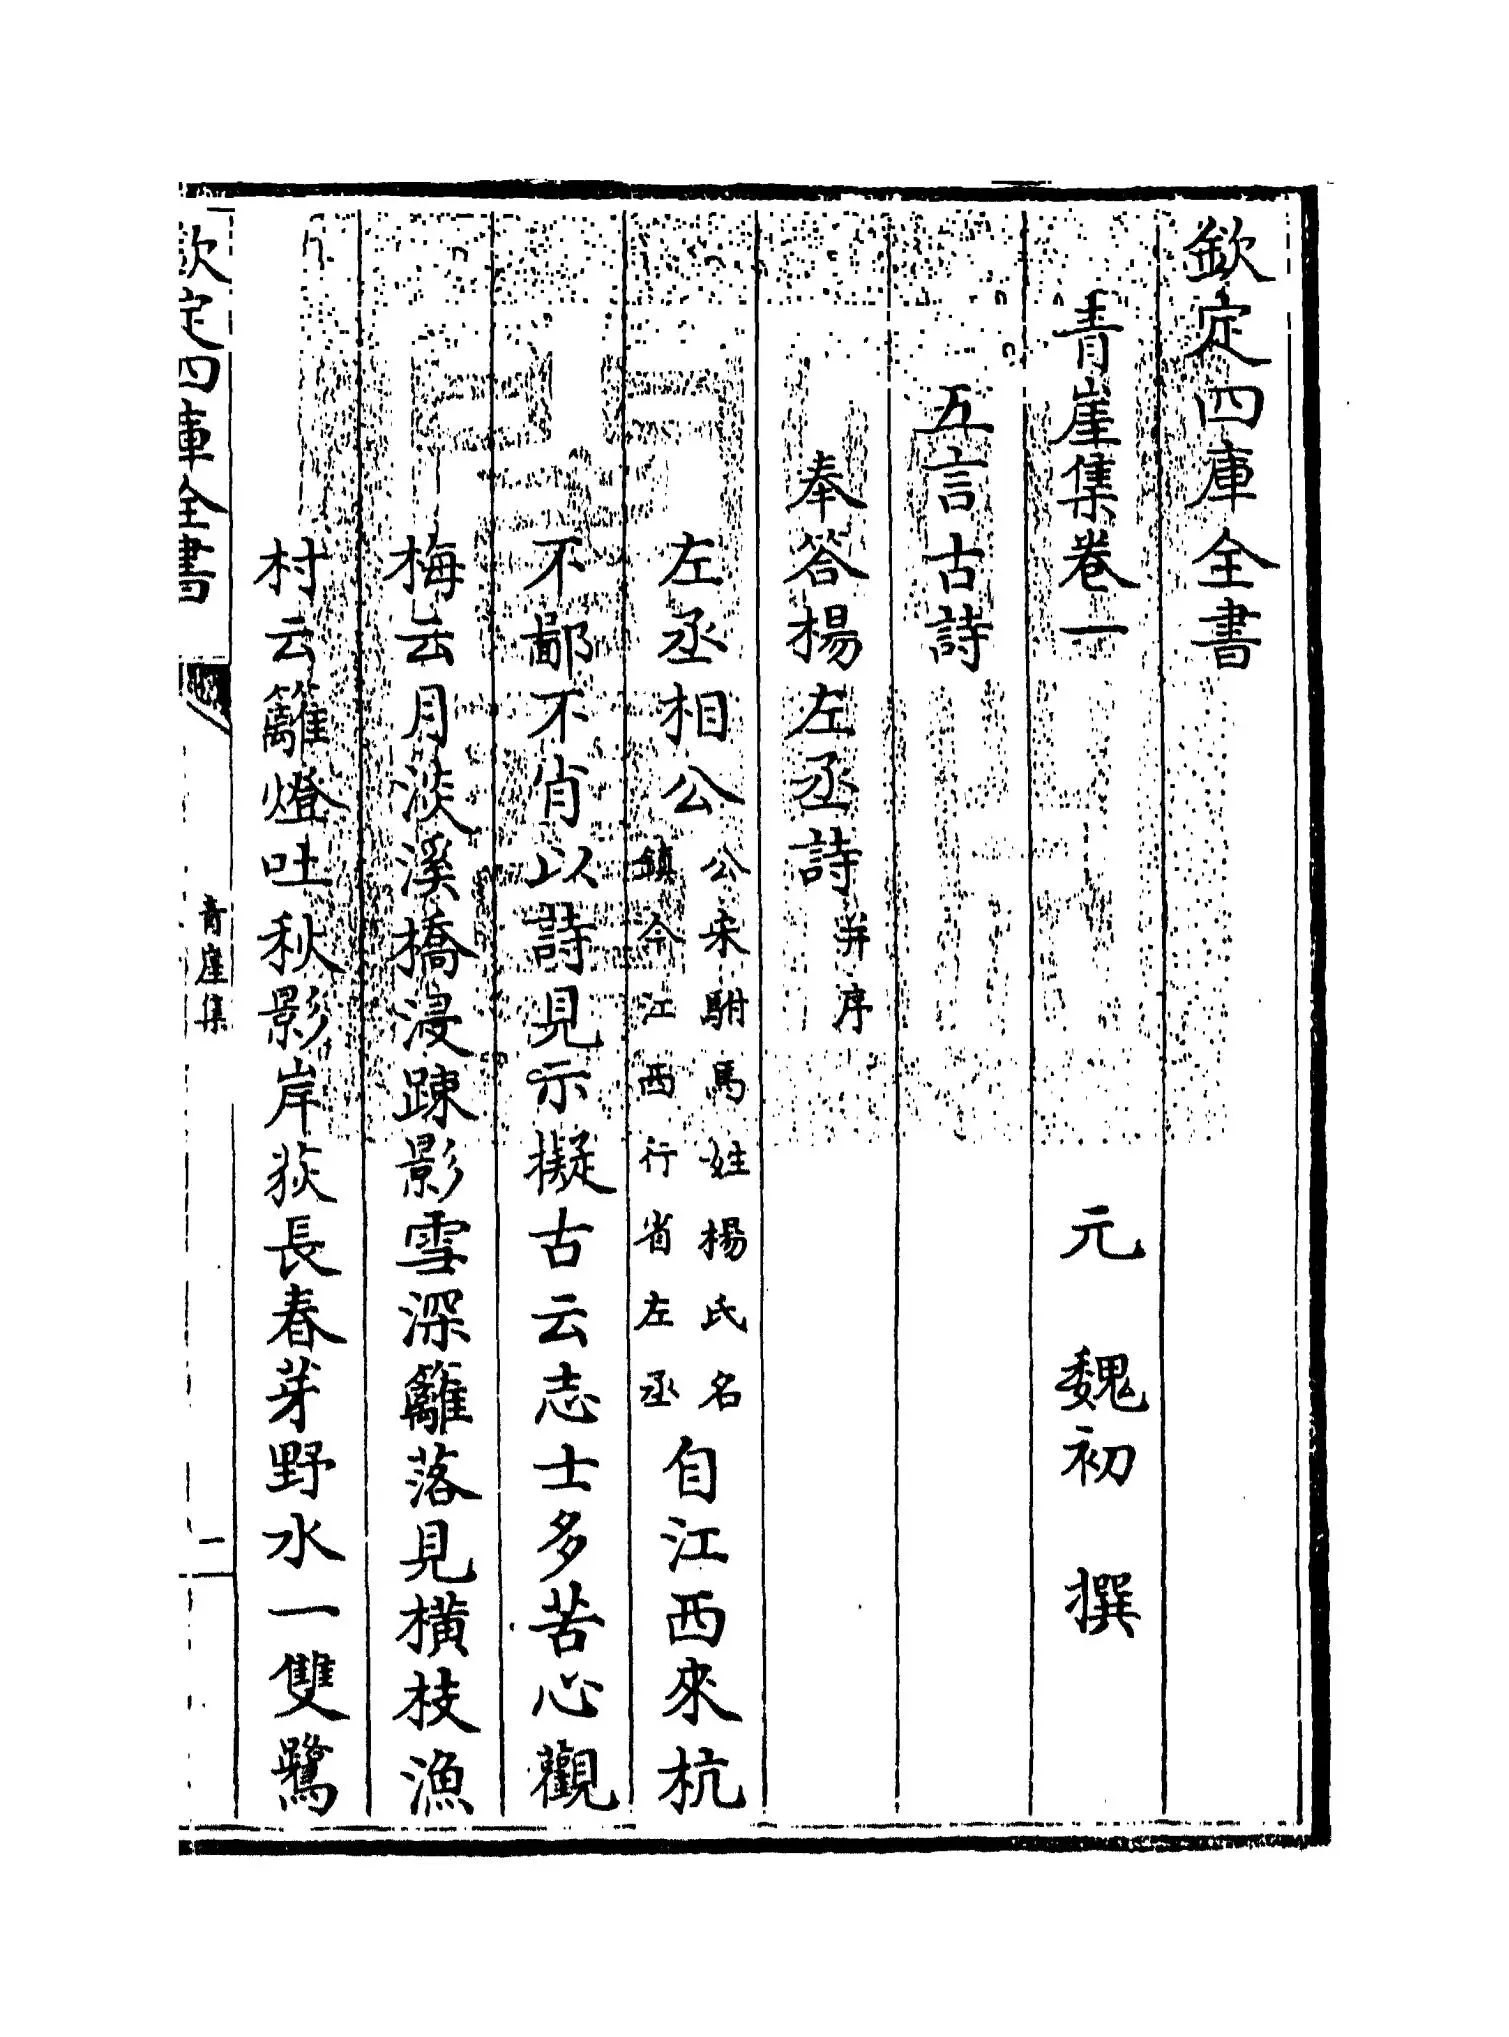 欽定四庫全書
青崖集卷一
元 魏初 撰
五言古詩
奉答楊左丞詩并序
左丞相公公宋駙馬姓楊氏名鎮今江西行省左丞自江西來杭
不鄙不肖以詩見示擬古云志士多苦心觀
梅云月淡溪橋浸踈影雪深籬落見橫枝漁
村云籬燈吐秋影岸荻長春芽野水一雙鷺
欽定四庫全書
青崖集
一